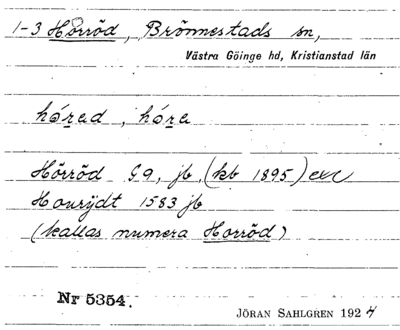 1-3 Horröd, Brönnestads sn,
Västra Göinge hd, Kristianstad län
hórad, hóra
Hörröd G9, jb, (kb 1895) exc
Hourijdt 1583 jb
(kallas numera Horröd)
Nr 5354.
JÖRAN SAHLGREN 1924